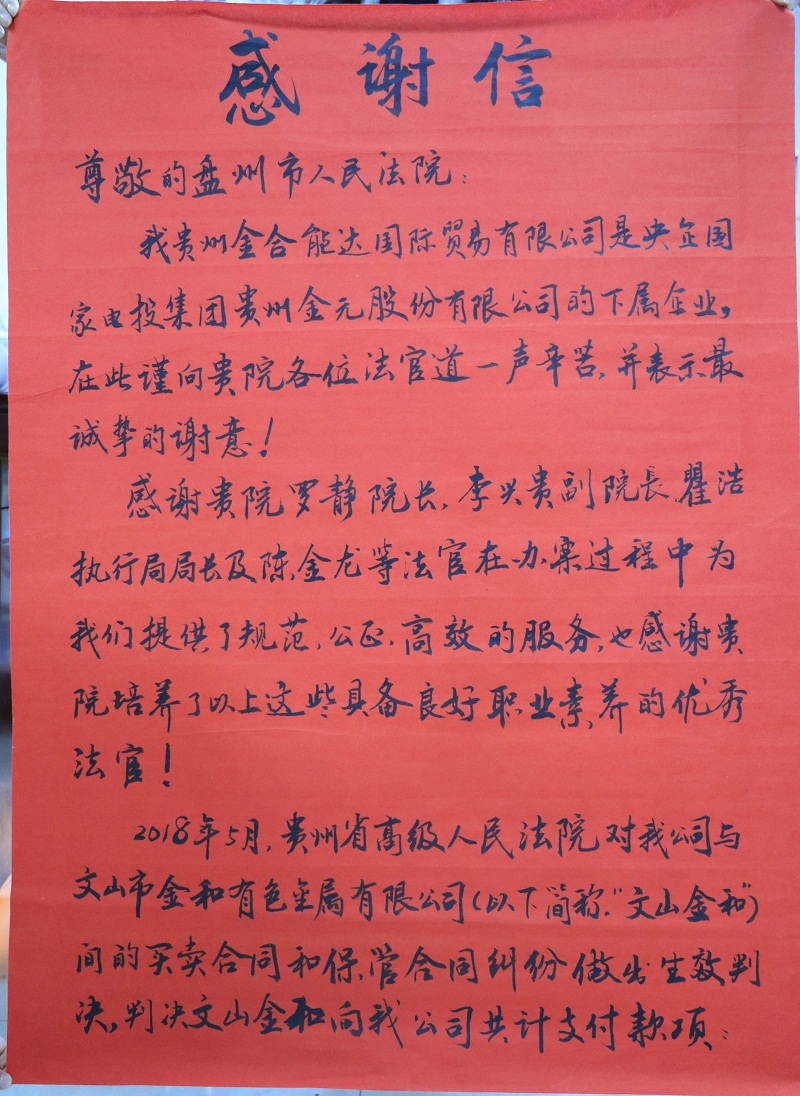 感谢信
尊敬的盘州市人民法院：
我贵州金合能达国际贸易有限公司是央企国
家电投集团贵州金元股份有限公司的下属企业，
在此谨向贵院各位法官道一声辛苦，并表示最
诚挚的谢意！
感谢贵院罗静院长，李兴贵副院長，瞿浩
执行局局长及陈金龙等法官在办案过程中为
我们提供了规范，公正，高效的服务，也感谢贵
院培养了以上这些具备良好职业素养的优秀
法官！
2018年5月，贵州省高级人民法院对我公司与
文山市金和有色金属有限公司(以下简称“文山金和”)
间的买卖合同和保管合同纠纷做出生效判
决，判决文山金和向我公司共计支付款项：